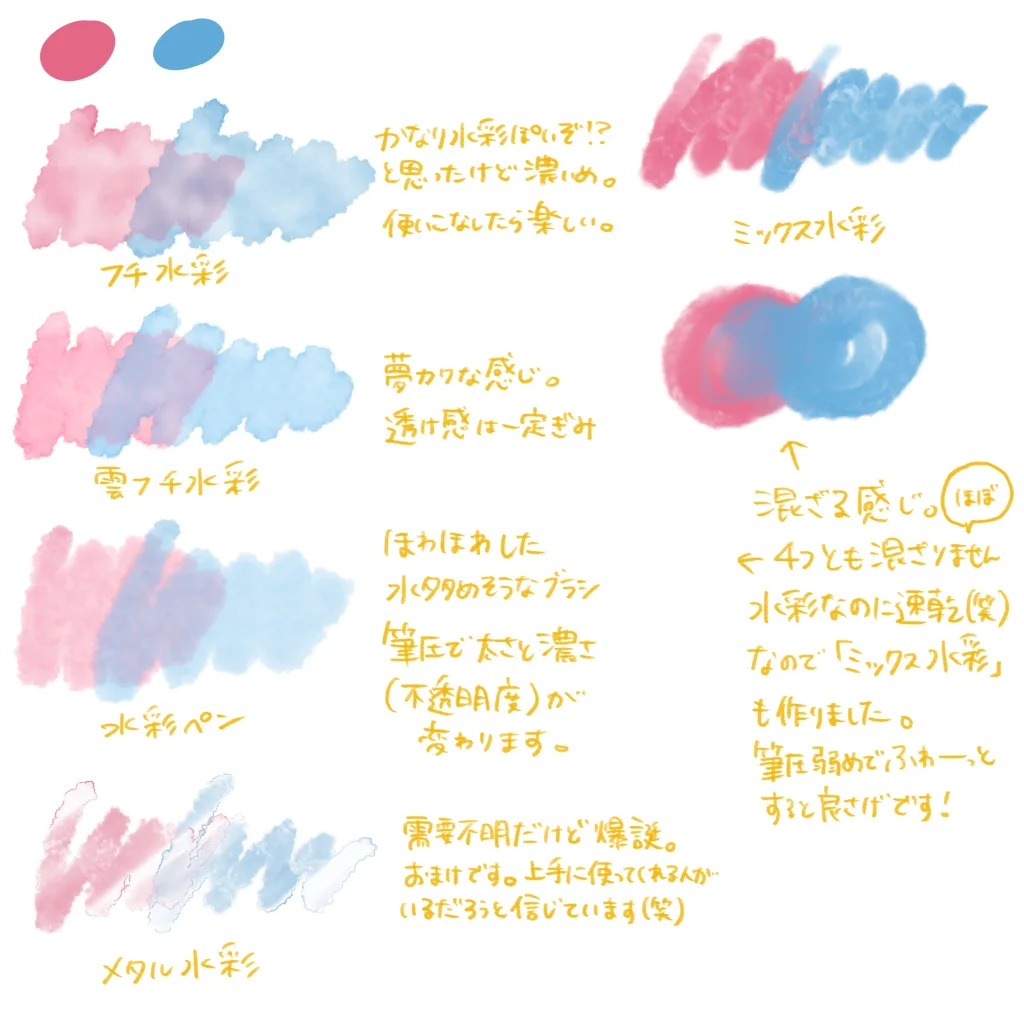 かなり水彩ぽいぞ!?
と思ったけど濃いめ。
使いこなしたら楽しい。
フチ水彩
夢カワな感じ。
透け感は一定ぎみ
雲フチ水彩
ほわほわした
水多めそうなブラシ
筆圧で太さと濃さ
(不透明度)が
変わります。
水彩ペン
需要不明だけど爆誕。
おまけです。上手に使ってくれる人が
いるだろうと信じています(笑)
メタル水彩
ミックス水彩
↑
混ざる感じ。
ほぼ
← 4つとも混ざりません
水彩なのに速乾(笑)
なので「ミックス水彩」
も作りました。
筆圧弱めでふわーっと
すると良さげです!